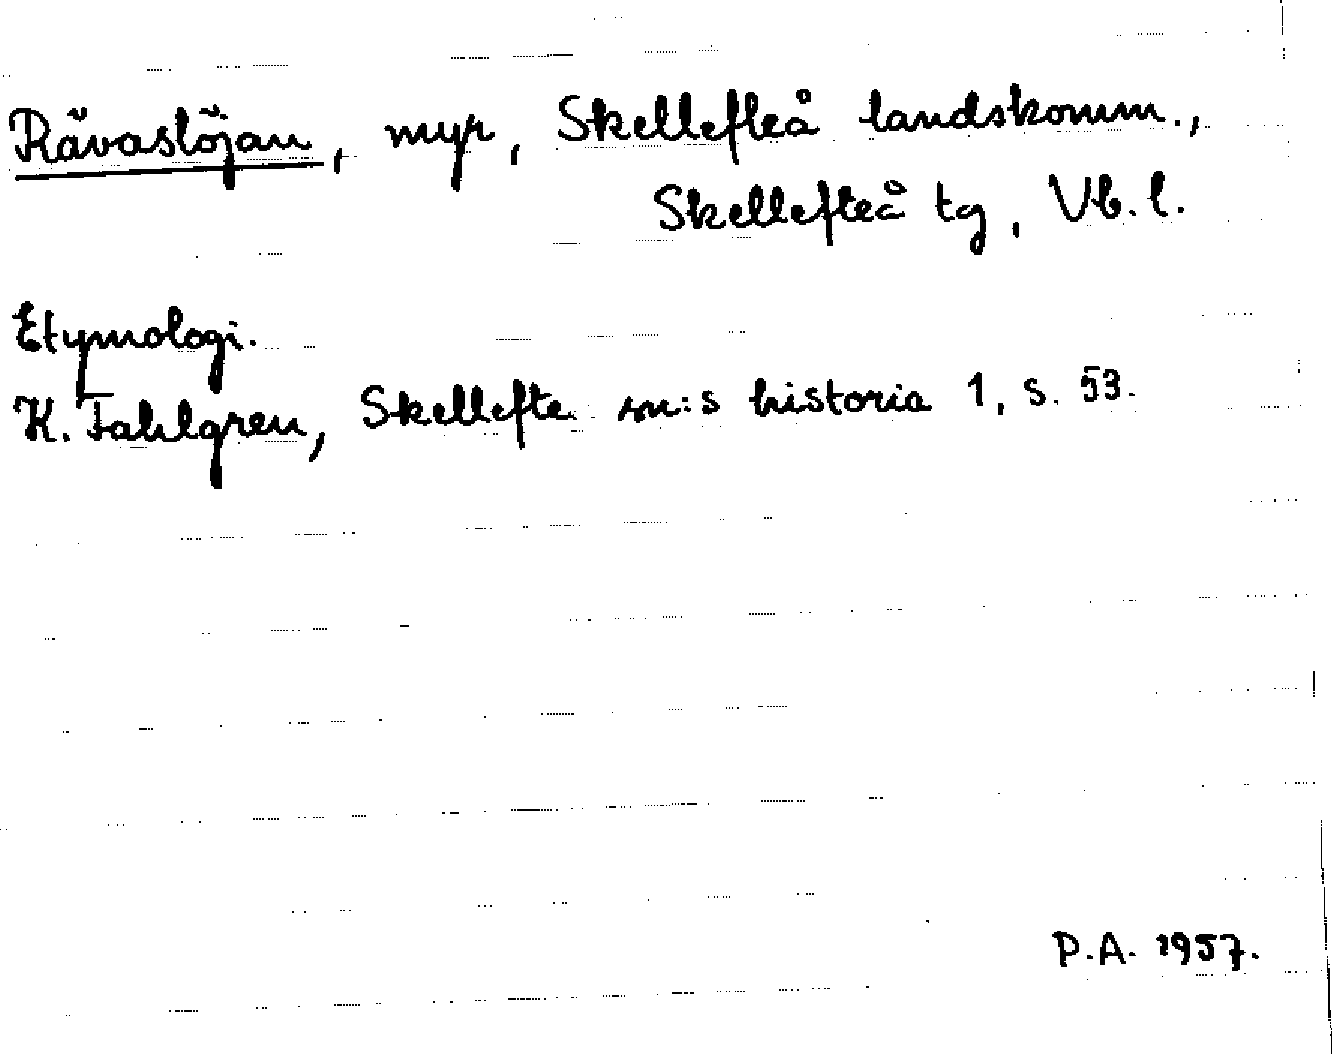 Rävaslöjan, myr, Skellefteå landskomm.,
Skellefteå tg, Vb. l.
Etymologi.
K. Fahlgren, Skellefte sn:s historia 1, s. 53.
P.A. 1957.